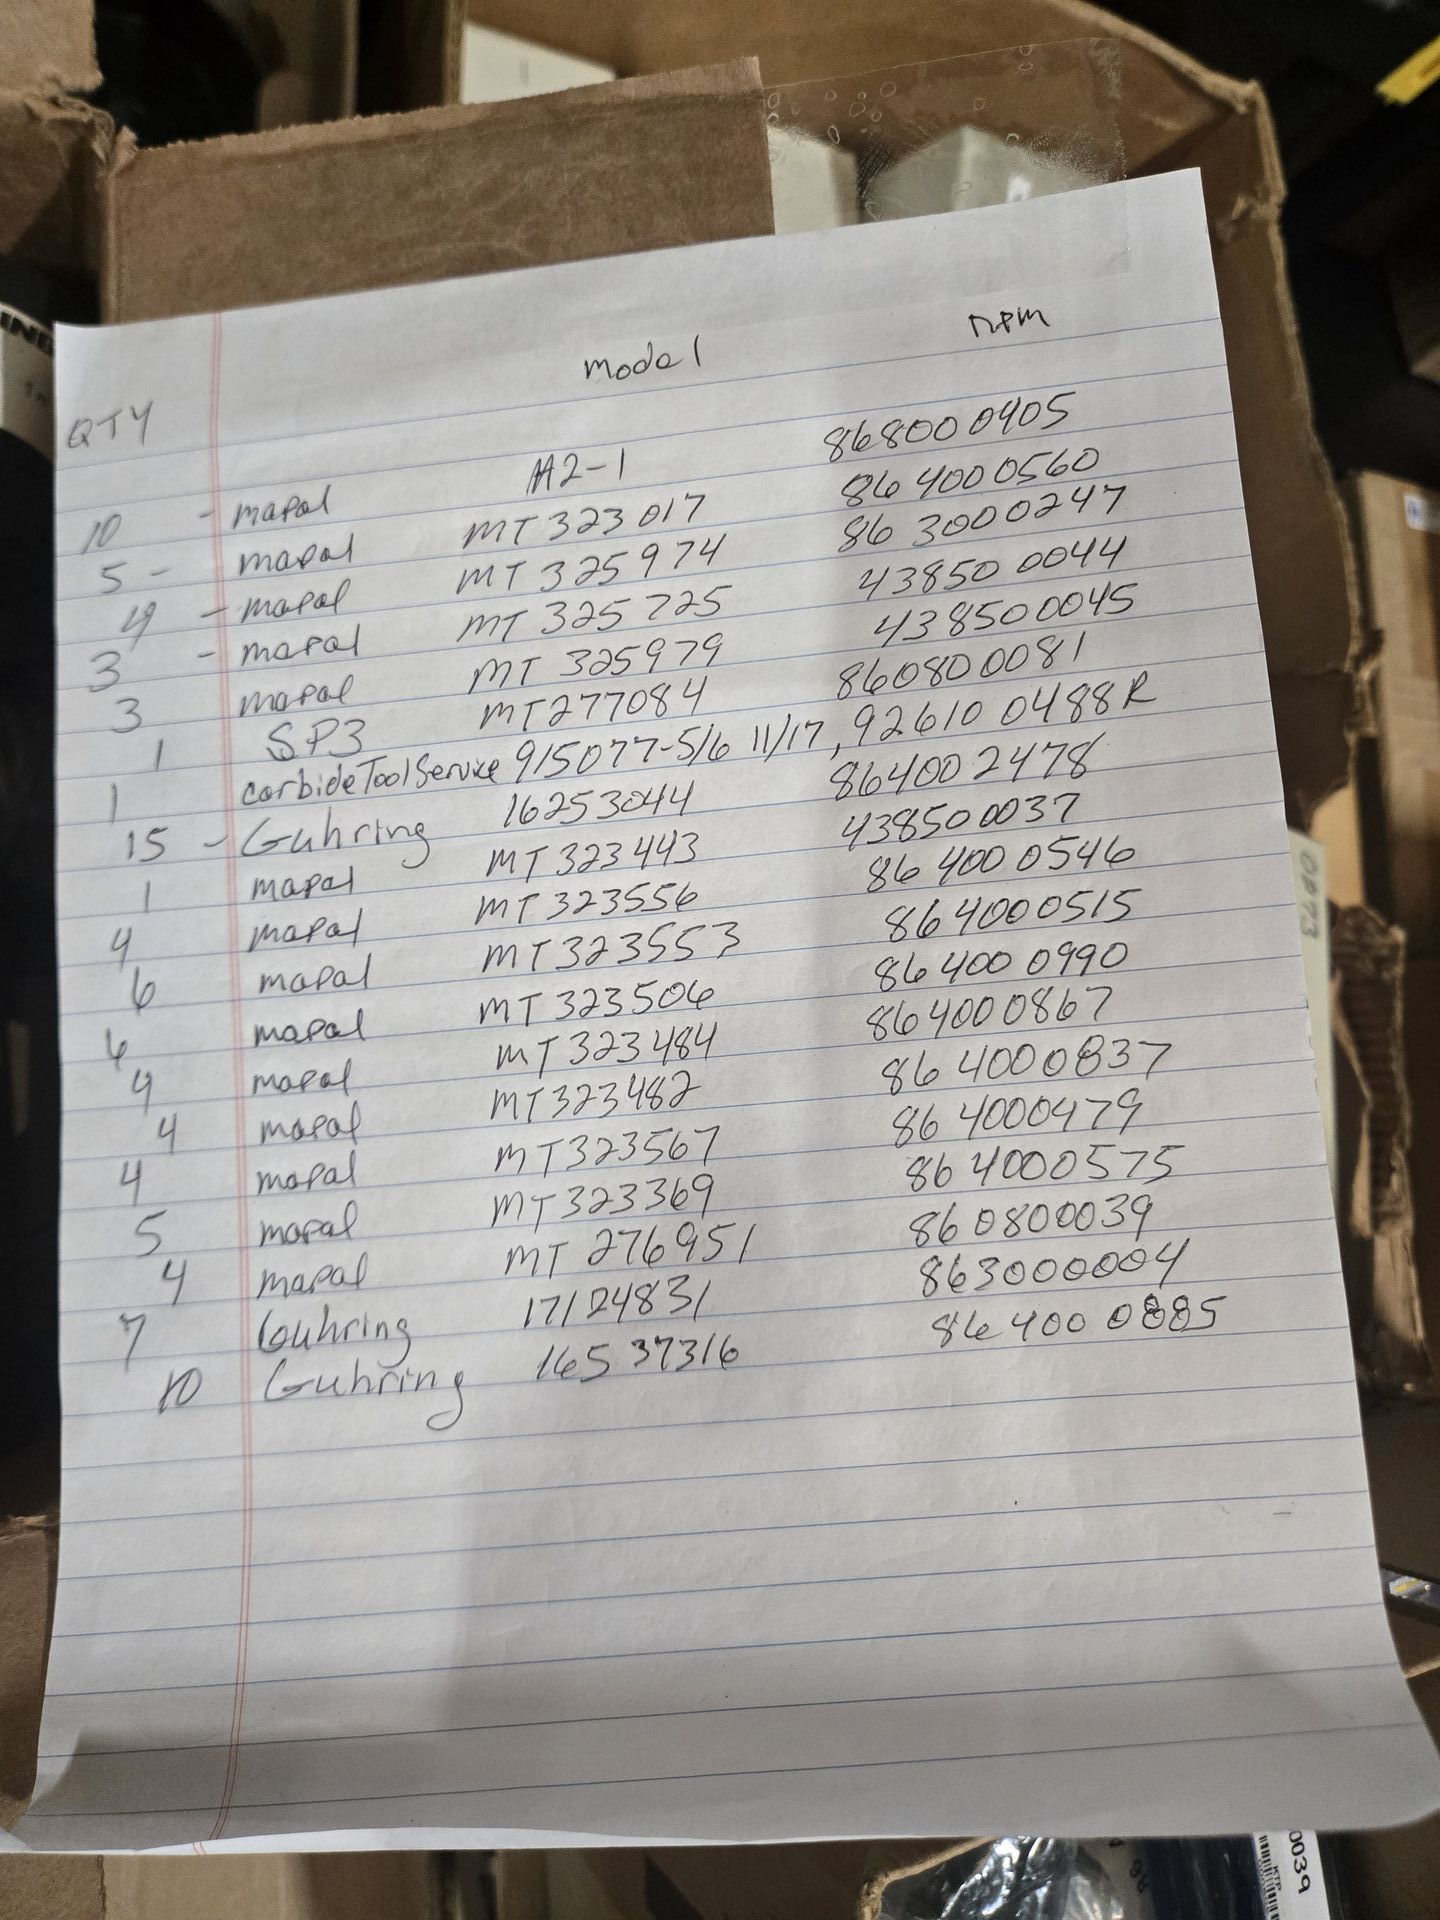 model npm
QTY
10 - mapal A2-1 868000 0405
5 - mapal MT 323017 864000560
4 - mapal MT 325974 863000247
3 - mapal MT 325725 438500044
3 mapal MT 325979 438500045
1 SP3 MT277084 860800081
1 carbide Tool Service 915077-5/6 11/17, 926100488R
15 - Guhring 16253044 864002478
1 mapal MT 323443 438500037
4 mapal MT 323556 864000546
6 mapal MT 323553 864000515
6 mapal MT 323506 864000990
4 mapal MT 323484 864000867
4 mapal MT 323482 864000837
4 mapal MT 323567 864000479
5 mapal MT 323369 864000575
4 mapal MT 276951 860800039
7 Guhring 17124831 863000004
10 Guhring 16537316 864000885
0039